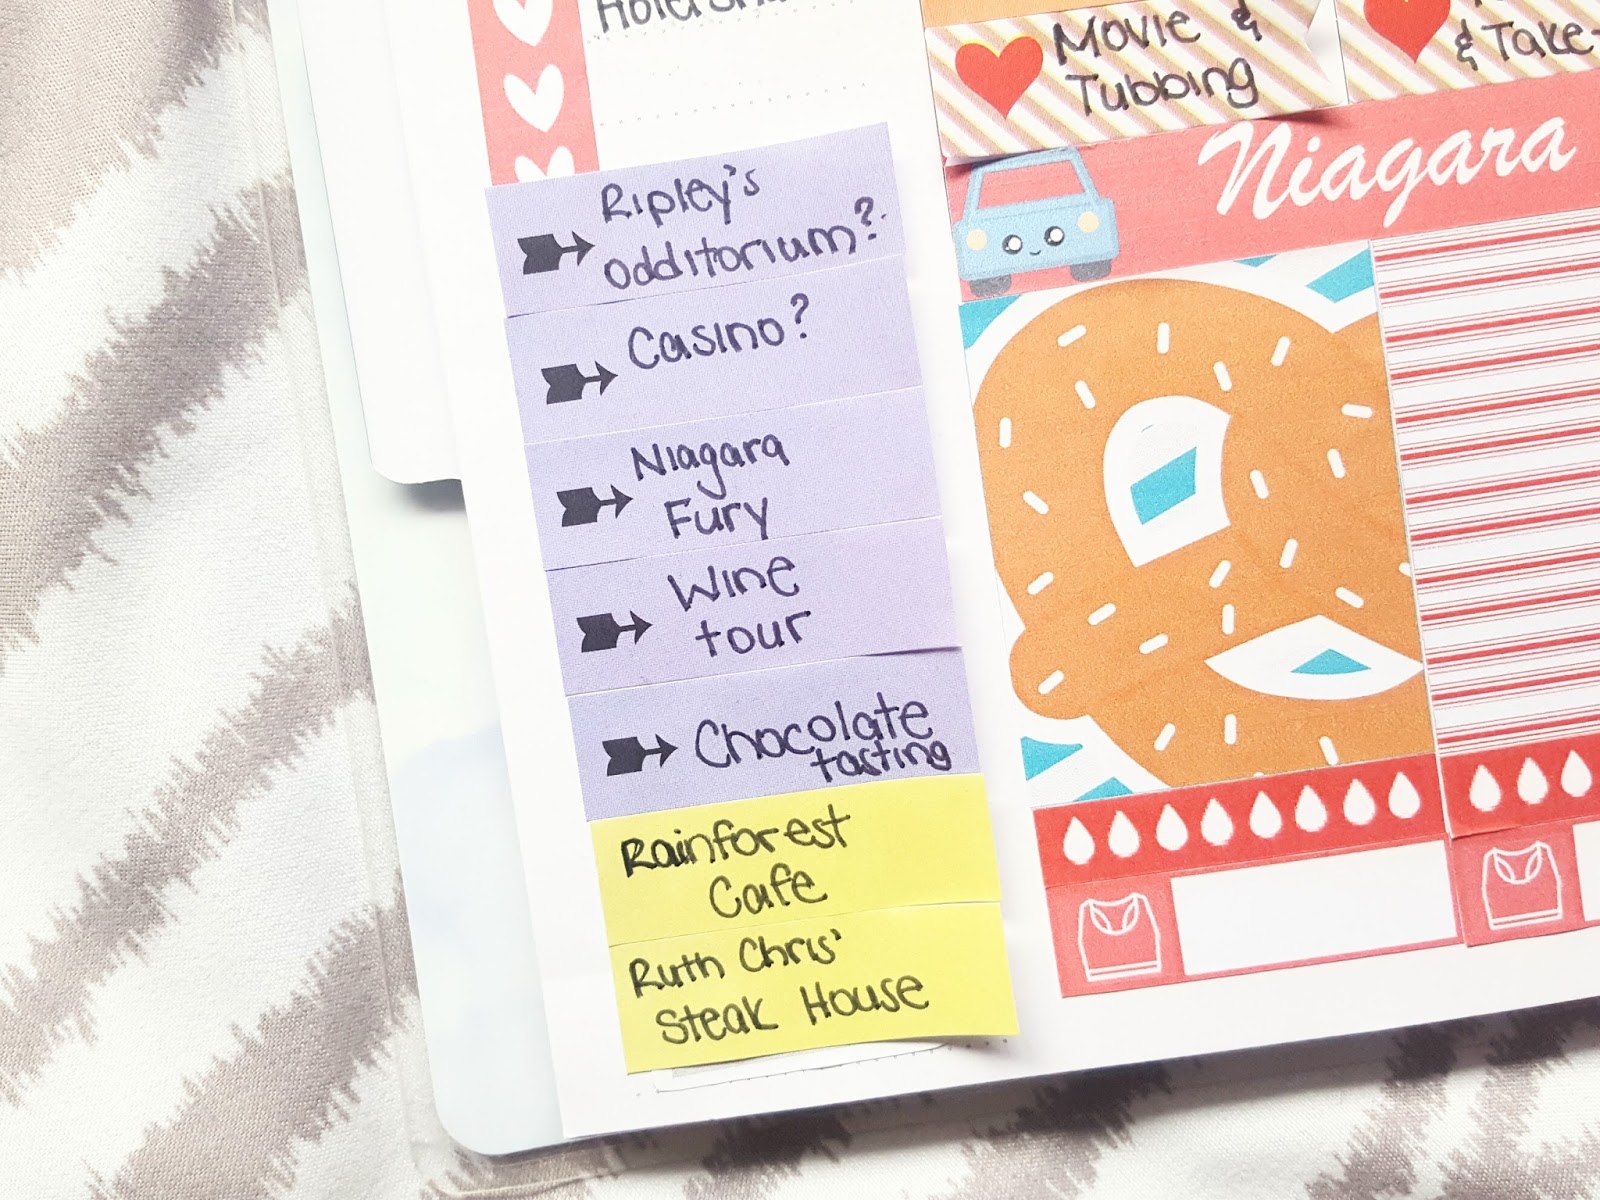 Movie &
Tubbing
& Take-
Niagara
Ripley's
odditorium?
Casino?
Niagara
Fury
Wine
tour
Chocolate
tasting
Rainforest
Cafe
Ruth Chris'
Steak House